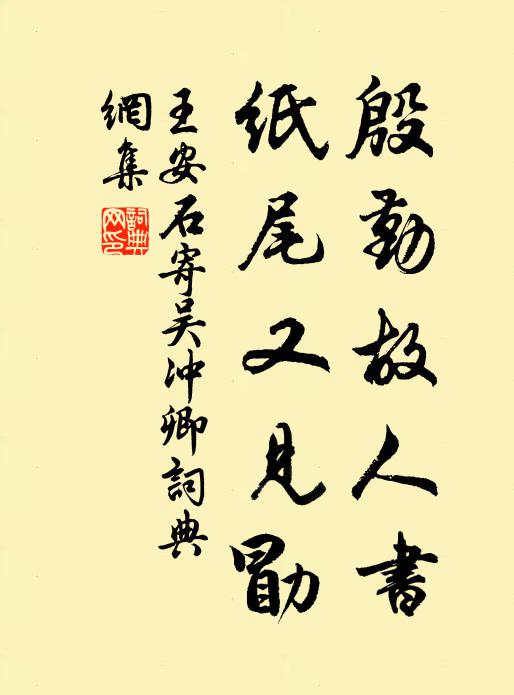 殷勤故人書
紙尾又見勖
王安石寄吴沖卿詞典
網集
詞典網印